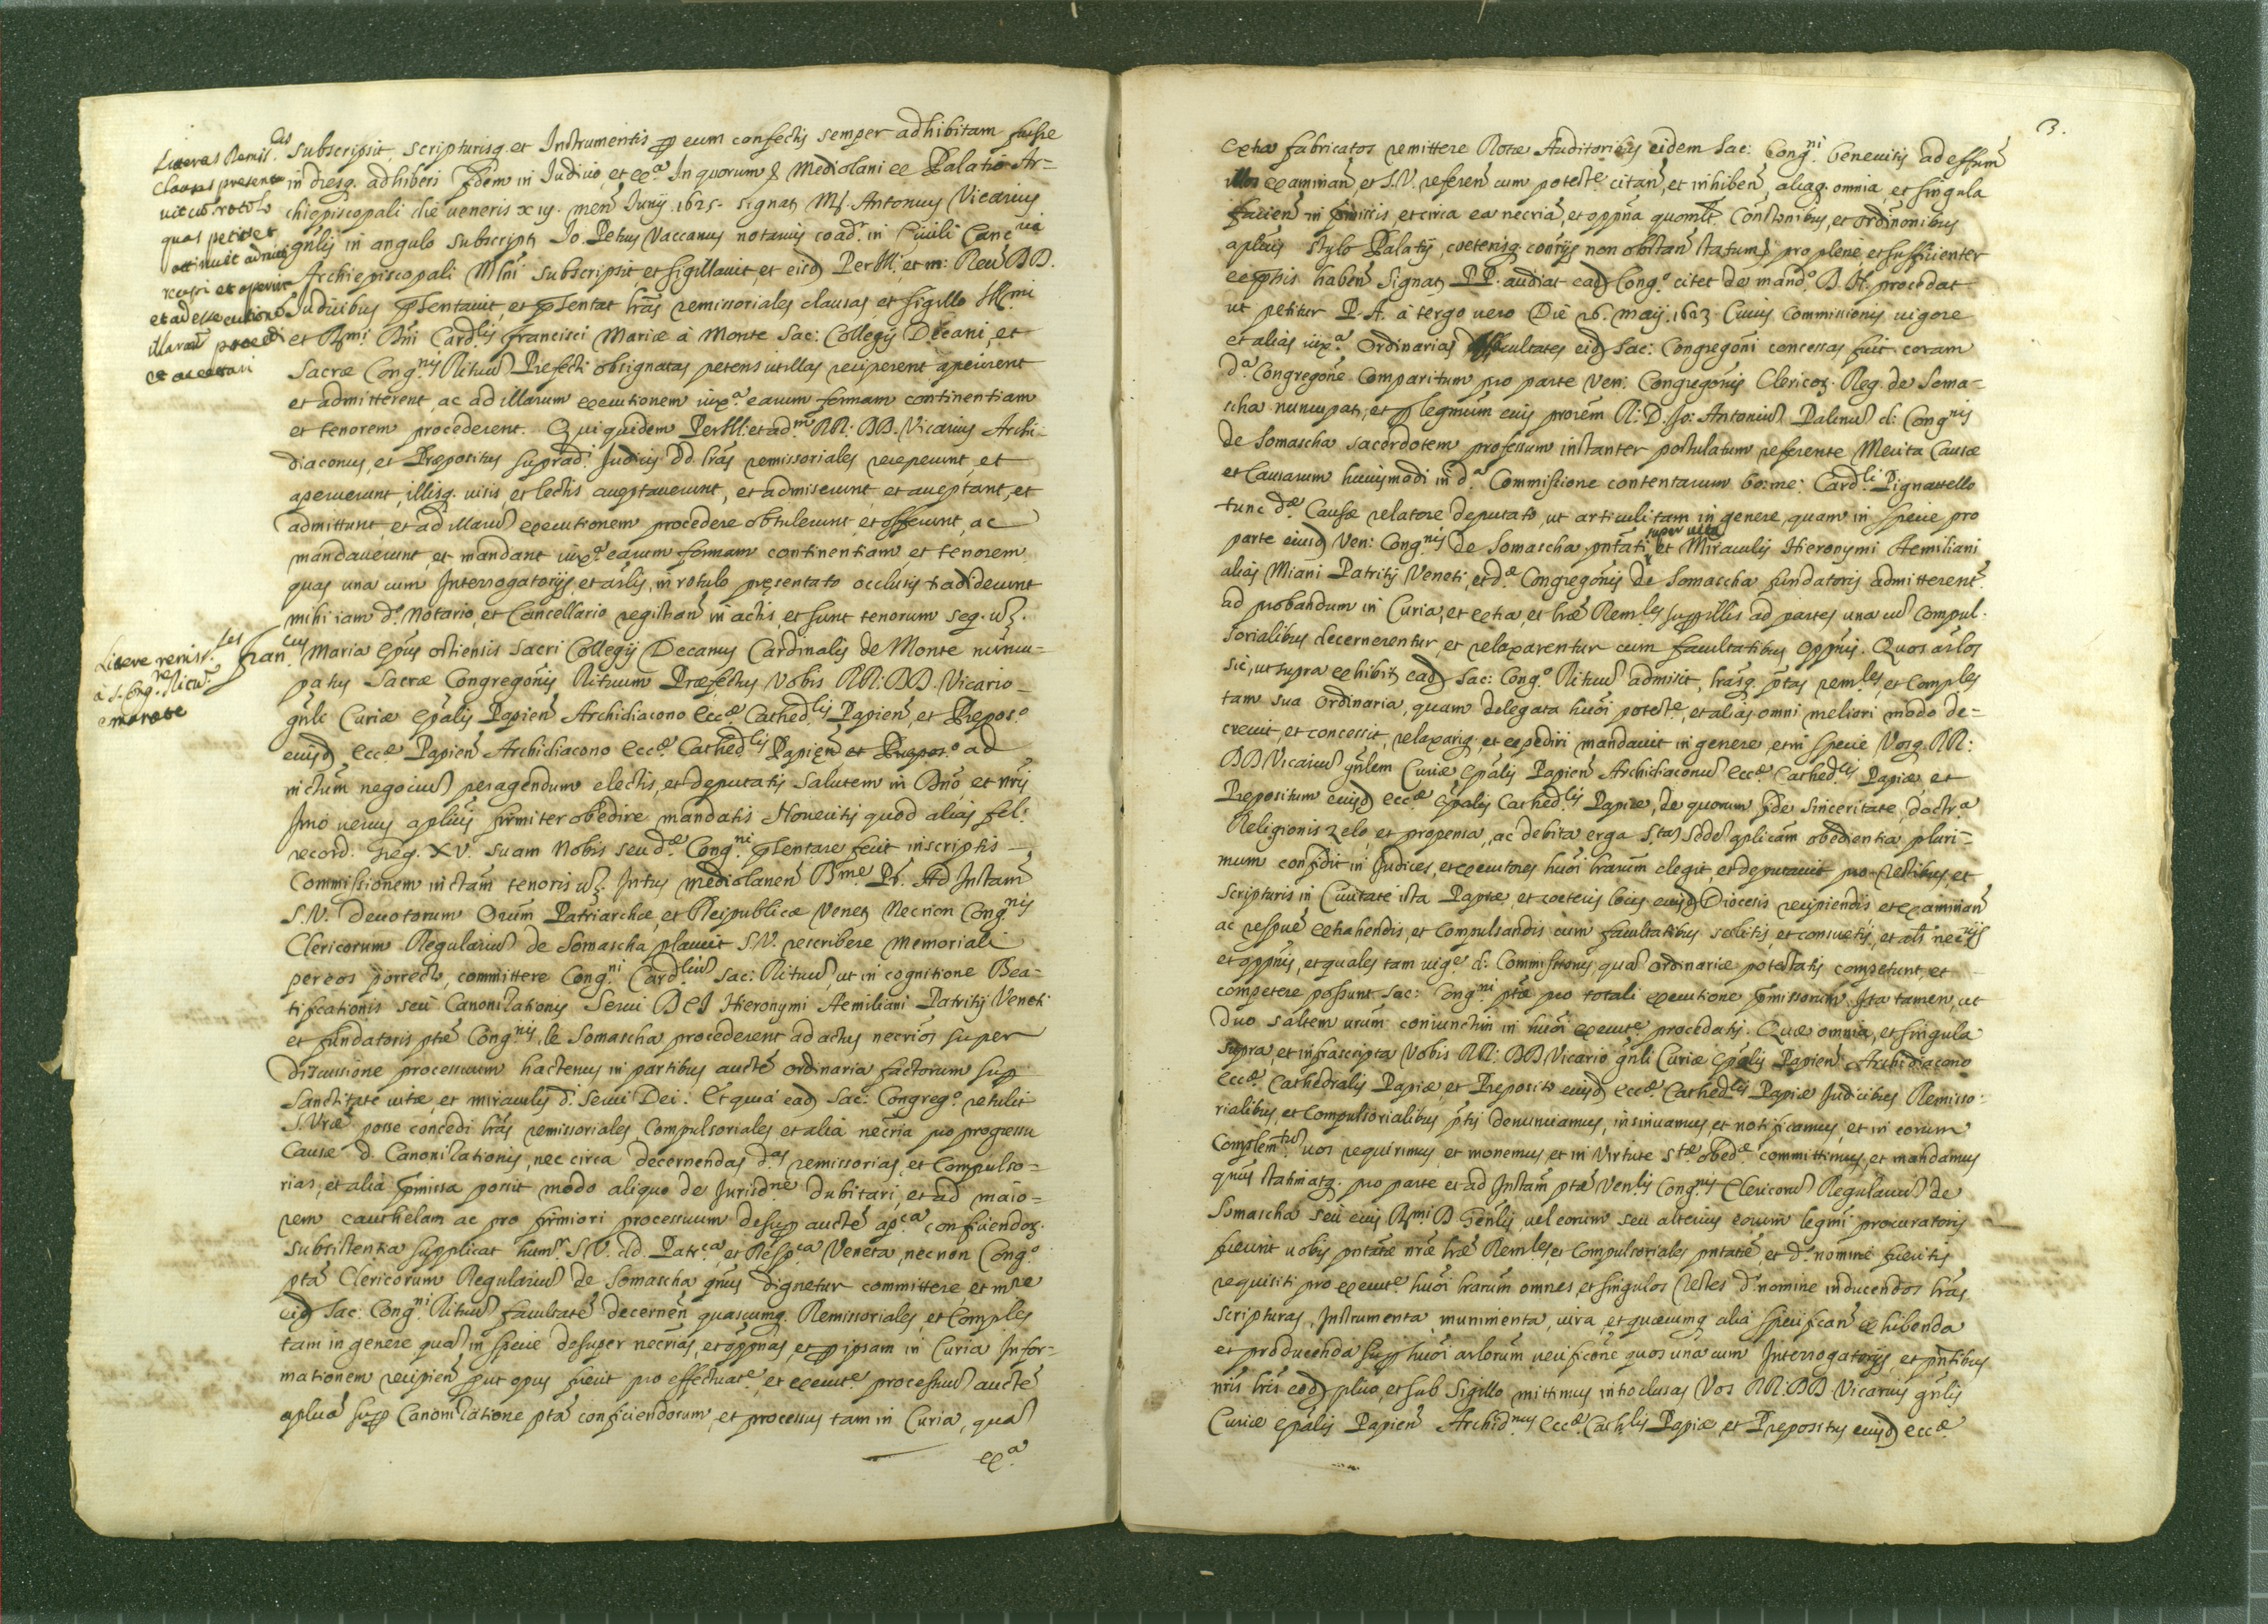 subscripsit, scripturisq. et Instrumentis p eum confectis semper adhibitam fuisse
in diesq. adhiberi fidem in Judicio, et exa. In quorum &. Mediolani ex Palatio Ar=
chiepiscopali die veneris xiij. men Junij. 1625. signat M. Antonius Vicarius
gnlis in angulo subscript Jo. Petrus Vaccanus notarius coadr. in Civili Cancria
Archiepiscopali Mlni subscripsit et sigillavit, et eisd Per Ill. et m: Revd DD.
Judicibus pñtentavit, et pñtentat lras remissoriales clausas, et sigillo Illmi
et Rmi Dni Cardlis francisci Mariæ à Monte Sac: Collegij Decani, et
Sacræ Congnis Rituu Prefecti obsignatas petens ut illas reciperent aperirent
et admitterent, ac ad illarum executionem iuxa. earum formam continentiam
et tenorem procederent. Qui quidem Per Ill. et adm. RR. DD. Vicarius Archi=
diaconus, et Præpositus suprad. Judices dd. lras remissoriales receperunt, et
aperuerunt, illisq. visis, et lectis acceptaverunt, et admiserunt et acceptant, et
admittunt, et ad illaru executionem procedere obtulerunt, et offerunt, ac
mandaverunt, et mandant iuxa. earum formam continentiam et tenorem
quas una cum Interrogatorijs, et arlis, in rotulo presentato occlusis tradiderunt
mihi iam do. Notario, et Cancellario registran in actis, et sunt tenorum seq. uz.
Francus Maria Epus ostiensis sacri Collegij Decanus Cardinalis de Monte nuncu=
patus Sacræ Congregonis Rituum Præfectus Vobis RR: DD. Vicario
gnli Curiæ Epalis Papien Archidiacono Eccæ. Cathedlis Papien, et Preposo
eiusd Eccæ Papien Archidiacono Eccæ. Cathedlis Papien et Prepos.o ad
inctum negociu peragendum electis, et deputatis salutem in Dno, et nris
Imo verius aplicis firmiter obedire mandatis Noveritis quod alias fel.
record. Greg. XV. suam Nobis seu dæ Congni pñtentare fecit inscriptis
Commissionem inctam tenoris uz. Intus Mediolanen Bme Pr. Ad Instam
S.V. devotorum Orum Patriarchæ, et Reipublicæ Venet Necnon Congnis
Clericorum Regulariu de Somascha placuit S.V. rescribere memoriali
per eos porrecto, committere Congni Cardliu Sac: Rituu, ut in cognitione Bea=
tificationis seu Canonizationis Servi DEI Hieronymi Aemiliani Patritij Veneti
et fundatoris ptæ Congnis de Somascha procederent ad actus necrios super
discussione processuum hactenus in partibus aucte ordinaria factorum sup
Sanctitate vitæ, et miraculis d. servi Dei. Et quia ead Sac: Congrego. retulit
S.Vræ posse concedi lras remissoriales Compulsoriales et alia necria pro progressu
Causæ d. Canonizationis, nec circa decernendas das remissorias, et Compulso=
rias, et alia pmissa possit modo aliquo de Jurisdne dubitari, et ad maio=
rem cauthelam ac pro firmiori processuum desup aucte apca conficiendoz.
subsistentia supplicat humr. S.V. dd. Patrca, et Respca Veneta, necnon Congo.
pta Clericorum Regulariu de Somascha qnus dignetur committere, et mre
eid Sac: Congni Rituu facultate decernen quascumq. Remissoriales, et Comples
tam in genere qua in specie desuper necrias, et oppnas, et p ipsam in Curia Infor=
mationem recipien put opus fuerit pro effectuate, et exeute processuu aucte
aplica sup Canonizatione pta conficiendorum, et processus tam in Curia, qua
exa.
Literas Remisles
clausas presenta
vit cu rotulo
quas petit et
ottinuit admitti
recepi et aperire
et ad essecutione
illaru procedi
et accettari
Litere remissles
à S. Congne Rituu
emanate
3.
extra fabricatos remittere Rotæ Auditoribus eidem Sac: Congni. benevisis ad effum
illos examinan et S.V. referen cum poteste citan, et inhiben, aliaq. omnia, et singula
facien in pmissis, et circa ea necria, et oppna quomlt Constonibus, et ordinonibus
aplicis stylo Palatij, ceterisq. contrijs non obstan statum pro plene, et sufficienter
expssis haben Signat PP. audiat ead Congo. citet de mando. D. H. procedat
ut petitur P. A. à tergo vero Die 26. maij. 1623 Cuius Commissionis vigore
et alias iuxa. Ordinarias facultates eid Sac: Congregoni concessas fuit coram
da Congregone. Comparitum pro parte Ven: Congregonis Clericoz. Reg. de Soma=
scha nuncupat, et p legmum eius prorem R: D. Jo: Antoniu Palinu d: Congnis
de Somascha sacerdotem professum instanter postulatum referente Merita Causæ
et Causarum huiusmodi in da Commissione contentarum bo: me: Cardli Pignattello
tunc dæ Causæ relatore deputato, ut articuli tam in genere, quam in specie pro
parte eiusd Ven: Congnis de Somascha pntati super vita et Miraculis Hieronymi Aemiliani
alias Miani Patritij Veneti, et dæ Congregonis de Somascha fundatoris admitterent
ad probandum in Curia, et extra, et lræ Remles sup illis ad partes una cu Compul.
sorialibus decernerentur, et relaxarentur cum facultatibus oppnis. Quos arlos
sic, ut supra exhibit ead Sac: Congo. Rituu admisit, lrasq. ptas remles, et Comples
tam sua ordinaria, quam delegata huoi poteste, et alias omni meliori modo de=
crevit, et concessit, relaxariq. et expediri mandavit in genere, et in specie Vosq. RR:
DD Vicariu gnlem Curiæ Epalis Papien Archidiaconu Eccæ. Cathedlis Papiæ et
Prepositum eiusd Eccæ Epalis Cathedlis Papiæ, de quorum fide sinceritate, doctra
Religionis zelo, et propensa, ac debita erga Stam Sedem aplicam obedientia pluri=
mum confidit in Judices, et executores huoi lrarum elegit, et deputavit pro testibus, et
scripturis in Civitate ista Papiæ et ceteris locis eiusd Diocesis recipiendis et examinan
ac respue extrahendis, et compulsandis cum facultatibus solitis, et consuetis, et als necrijs
et oppnis, et quales tam vige d: Commissionis qua ordinariæ potestatis competunt, et
competere possunt Sac: Congni ptæ pro totali executione pmissorum. Ita tamen, ut
duo saltem vrum coniunctim in huoi exeute procedatis. Quæ omnia, et singula
supra et infrascripta Vobis RR: DD Vicario gnli Curiæ Epalis Papien Archidiacono
Eccæ. Cathedralis Papiæ, et Preposito eiusd Eccæ. Cathedlis Papiæ Judicibus Remisso=
rialibus, et Compulsorialibus ptis denunciamus, insinuamus, et notificamus, et in eorum
Complemtu vos requirimus et monemus, et in Virtute Stæ obedæ committimus, et mandamus
qnus statimatq. pro parte et ad Instam ptæ Venlis Congnis Clericoru Regulariu de
Somascha seu eius Rmi D Genlis, vel eorum seu alterius eorum legmi procuratoris
fuerint vobis pntatæ nræ lræ Remles, et Compulsoriales pntatæ, et do. nomine fueritis
requisiti pro exeute huoi lrarum omnes, et singulos testes do. nomine inducendos lras
scripturas, Instrumenta, munimenta, iura, et quæcumq alia specifican exhibenda
et producenda sup huoi arlorum verificone quos una cum Interrogatorijs et pntibus
nris lris eod plico, et sub sigillo mittimus introclusas Vos RR: DD Vicarius gnlis
Curiæ Epalis Papien Archidnus Eccæ. Cathlis Papiæ, et Prepositus eiusd Eccæ